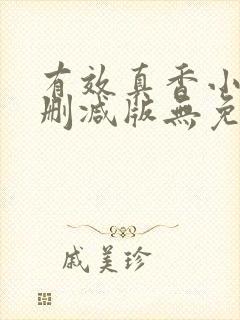 有效真香小
删减版無免
戚美珍